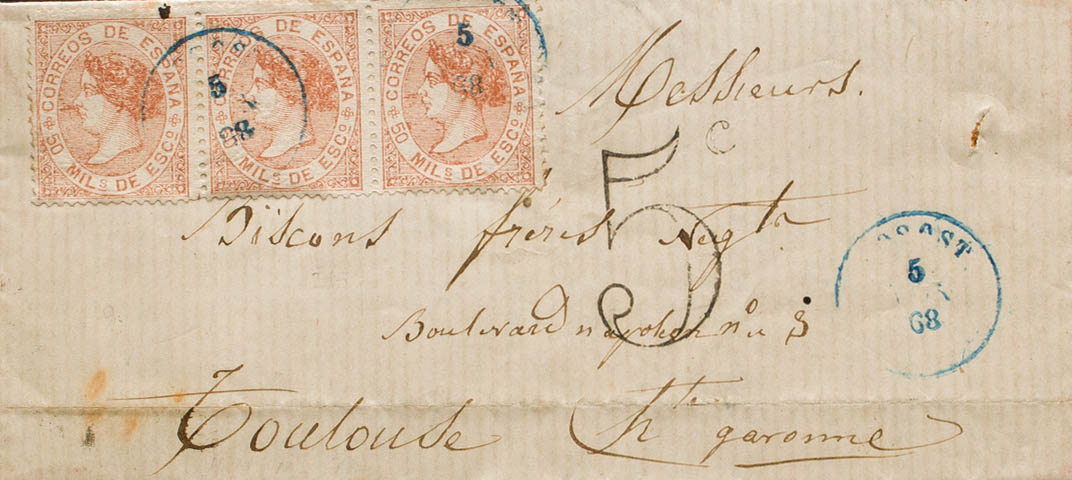 CORREOS DE ESPAÑA
50 MILS DE ESCO
CORREOS DE ESPAÑA
50 MILS DE ESCO
CORREOS DE ESPAÑA
50 MILS DE ESCO
5
68
5
68
Messieurs.
C
5
Biscons frères Negts
Boulevard napoleon nº 8
BOSOST
5
68
Toulouse Hte garonne